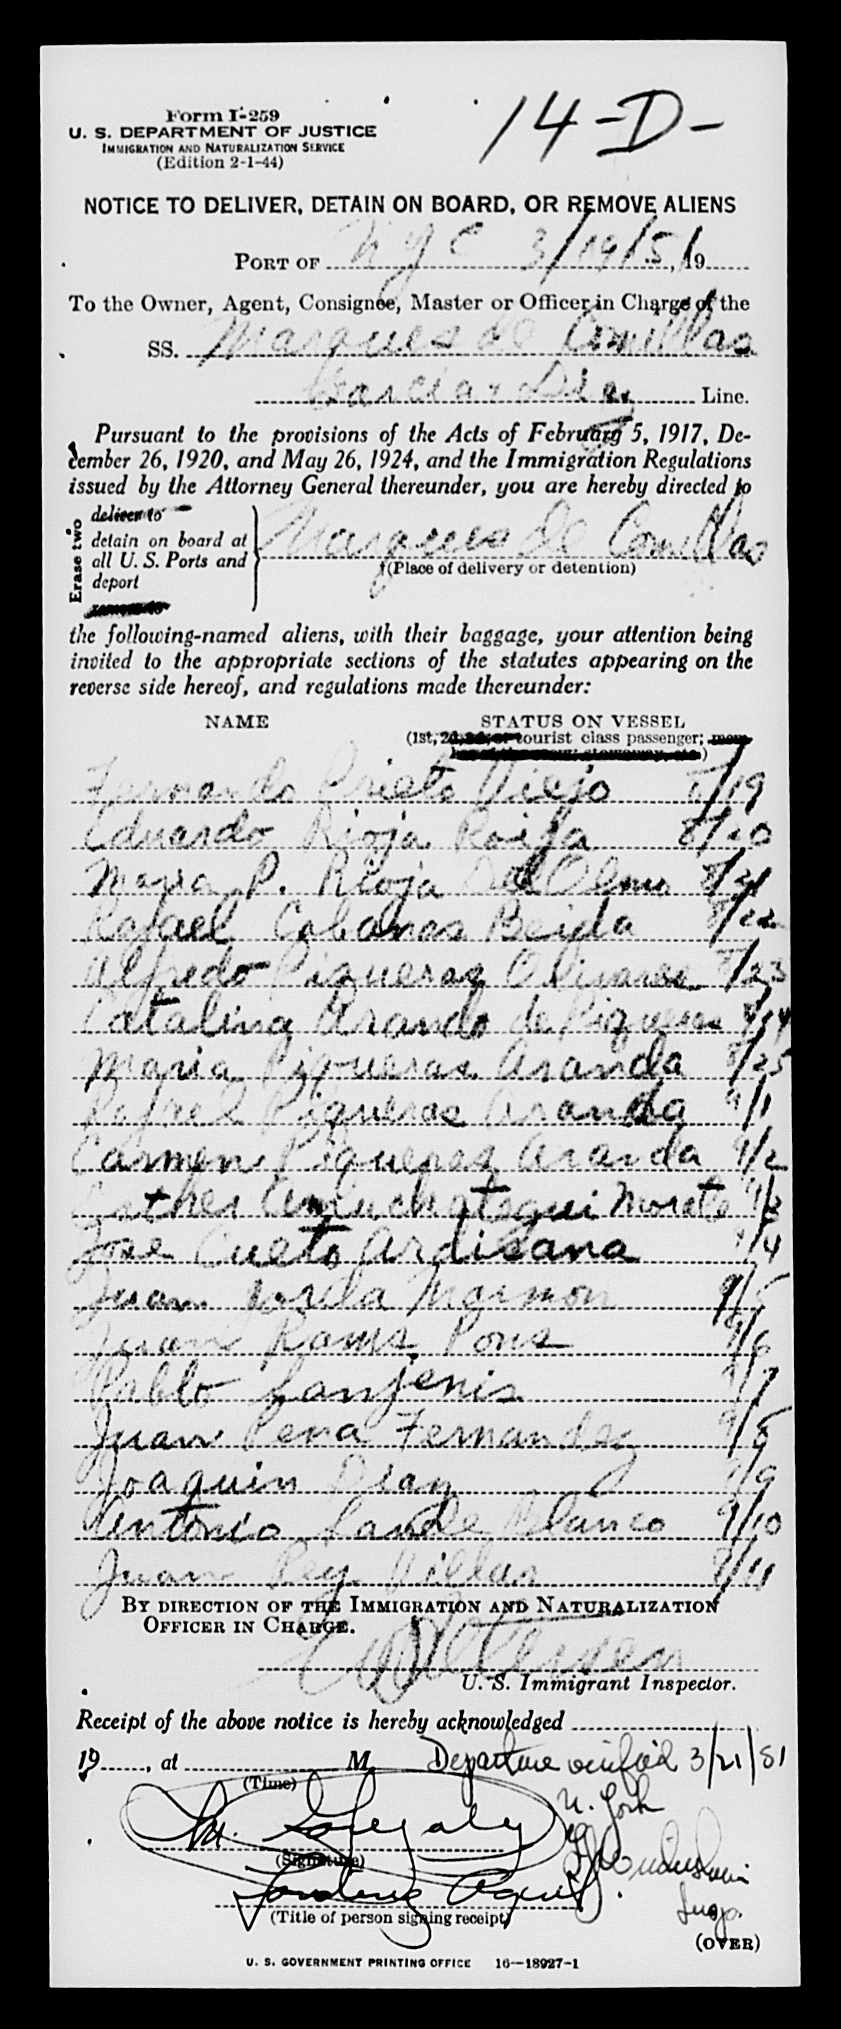 Form I-259
14-D-
U. S. DEPARTMENT OF JUSTICE
IMMIGRATION AND NATURALIZATION SERVICE
(Edition 2-1-44)
NOTICE TO DELIVER, DETAIN ON BOARD, OR REMOVE ALIENS
PORT OF NYC 3/19/51, 19
To the Owner, Agent, Consignee, Master or Officer in Charge of the
SS. Marques de Comillas
Garcia & Diaz Line.
Pursuant to the provisions of the Acts of February 5, 1917, De-
cember 26, 1920, and May 26, 1924, and the Immigration Regulations
issued by the Attorney General thereunder, you are hereby directed to
Erase two
deliver to
detain on board at
all U. S. Ports and
deport
remove to
Marques de Comillas
(Place of delivery or detention)
the following-named aliens, with their baggage, your attention being
invited to the appropriate sections of the statutes appearing on the
reverse side hereof, and regulations made thereunder:
NAME STATUS ON VESSEL
(1st, 2d, tourist class passenger;
Fernando Prieto Viejo 8/19
Eduardo Rioja 8/20
Maria P. Rioja Del Olmo 8/21
Rafael Cabanas Bejda 8/22
Alfredo Piqueras Olivares 8/23
Catalina Arando de Piqueras 8/24
Maria Piqueras Aranda 8/25
Rafael Piqueras Aranda 9/1
Carmen Piqueras Aranda 9/2
Esther Amuchategui Morete 9/3
Jose Cueto Ardisana 9/4
Juan Marmon 9/5
Juan Rams Pons 9/6
Pablo Sanjenis 9/7
Juan Pena Fernandez 9/8
Joaquin Diaz 9/9
Antonio Lande Blanco 9/10
Juan Rey Villar 9/11
BY DIRECTION OF THE IMMIGRATION AND NATURALIZATION
OFFICER IN CHARGE.
U. S. Immigrant Inspector.
Receipt of the above notice is hereby acknowledged
19, at M Departure verified 3/21/51
(Time)
N. York
(Signature)
Landing Agent
Insp.
(Title of person signing receipt)
(OVER)
U. S. GOVERNMENT PRINTING OFFICE 16—18927-1